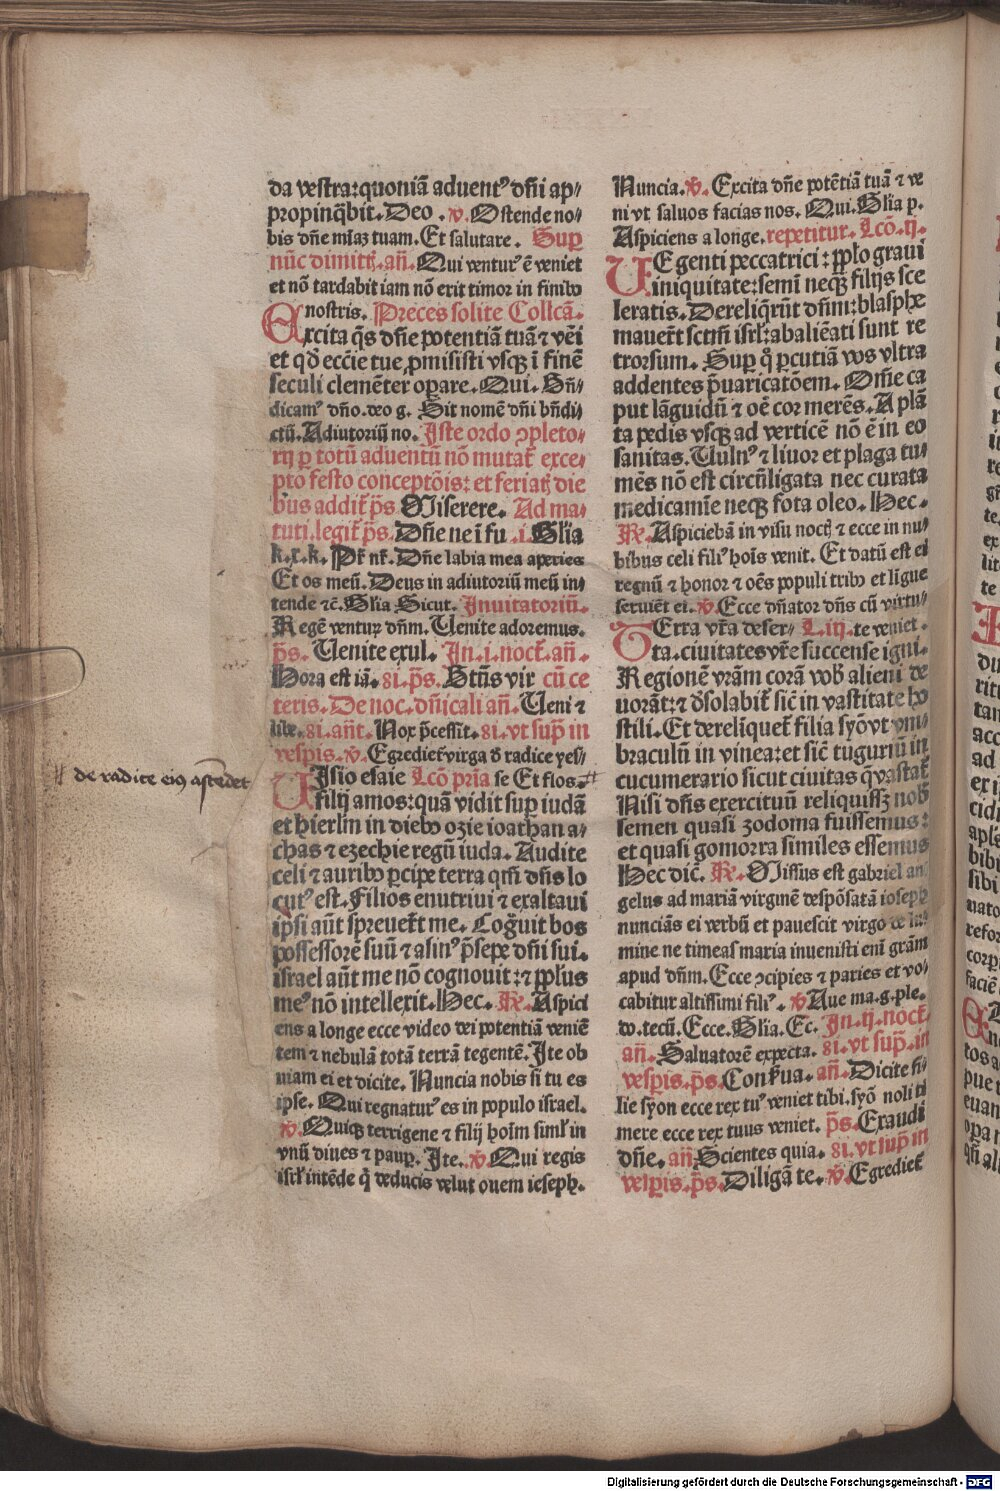 da vestra: quoniã aduentꝰ dñi ap⸗
propinq̃bit. Deo . v̄. Ostende no⸗
bis dñe mĩaʒ tuam. Et salutare. Suꝑ
nũc dimitt̃. añ. Qui venturꝰ ẽ veniet
et nõ tardabit iam nõ erit timor in finibꝰ
nostris. Preces solite Collcã.
Excita q̃s dñe potentiã tuã ⁊ vẽi
et qď eccĩe tue ꝓmisisti vsqʒ ĩ finẽ
seculi clemẽter oꝑare. Qui. Bñ⸗
dicamꝰ dño. deo g. Sit nomẽ dñi bñdi⸗
ctũ. Adiutoriũ no. Iste ordo ꝯpleto⸗
rij ꝑ totũ aduentũ nõ mutat̃ exce⸗
pto festo conceptõis: et feriatʒ die
bus addit̃ p̃s. Miserere. Ad ma⸗
tuti. legit̃ p̃s. Dñe ne ĩ fu .i. Glĩa
k. x. k. Pr̃ nr̃. Dñe labia mea aperies
Et os meũ. Deus in adiutoriũ meũ in⸗
tende ⁊c̃. Glĩa Sicut. Inuitatoriũ.
Regẽ venturũ dñm. Uenite adoremus.
p̃s. Uenite exul. In .i. noct̃. añ.
Hora est iã. 8i. p̃s. Btũs vir cũ ce
teris. De noc. dñicali añ. Ueni ⁊
libe. 8i. añt. Nox p̃cessit. 8i. vt suꝑ in
vesꝑis. v̄. Egrediet̃ virga ď radice yes⸗
Uisio esaie Lcõ pria se Et flos. #
filij amos: quã vidit suꝑ iudã
et hierlm̃ in diebꝰ ozie ioathan a⸗
chas ⁊ ezechie regũ iuda. Audite
celi ⁊ auribꝰ ꝑcipe terra qm̃ dñs lo
cutꝰ est. Filios enutriui ⁊ exaltaui
ip̃si aũt spreuer̃t me. Cog̃uit bos
possessorẽ suũ ⁊ asinꝰ p̃sepe dñi sui.
israel aũt me nõ cognouit: ⁊ pp̃lus
meꝰ nõ intellexit. Hec. R̃. Aspici
ens a longe ecce video dei potentiã veniẽ
tem ⁊ nebulã totã terrã tegentẽ. Ite ob
uiam ei et dicite. Nuncia nobis si tu es
ipse. Qui regnaturꝰ es in populo israel.
v̄. Quiqʒ terrigene ⁊ filij hoĩm siml̃ in
vnũ diues ⁊ pauꝑ. Ite. v̄. Qui regis
isrl̃ intẽde q̃ deducis velut ouem ioseph.
# de radice eiꝰ ascẽdet
Nuncia. v̄. Excita dñe potẽtiã tuã ⁊ ve
ni vt saluos facias nos. Qui. Glĩa p.
Aspiciens a longe. repetitur. Lcõ. ij.
UE genti peccatrici: pp̃lo graui
iniquitate: semĩ neqʒ filijs sce
leratis. Dereliq̃rũt dñm: blasphe
mauer̃t sctm̃ isrl̃: abaliẽati sunt re
trorsum. Suꝑ q̃ ꝑcutiã vos vltra
addentes p̃uaricatõem. Om̃e ca
put lãguidũ ⁊ oẽ cor merẽs. A plã
ta pedis vsqʒ ad verticẽ nõ ẽ in eo
sanitas. Uulnꝰ ⁊ liuor et plaga tu⸗
mẽs nõ est circũligata nec curata
medicamĩe neqʒ fota oleo. Hec.
R̃. Aspiciebã in visu noctʒ ⁊ ecce in nu⸗
bibus celi filiꝰ hoĩs venit. Et datũ est ei
regnũ ⁊ honor ⁊ oẽs populi tribꝰ et lĩgue
seruiẽt ei. v̄. Ecce dñator dñs cũ virtu⸗
TErra vr̃a deser⸗ L. iij. te veniet.
ta. ciuitates vr̃e succense igni.
Regionẽ vr̃am corã vob̃ alieni de
uorãt: ⁊ ďsolabit̃ sic̃ in vastitate ho
stili. Et derelinquet̃ filia syõ vt vm⸗
braculũ in vinea: et sic̃ tuguriũ in
cucumerario sicut ciuitas q̃ vastat̃
Nisi dñs exercituũ reliquissʒ nob̃
semen quasi zodoma fuissemus:
et quasi gomorra similes essemus
Hec dic̃. R̃. Missus est gabriel an
gelus ad mariã virginẽ despõsatã ioseph
nunciãs ei verbũ et pauescit virgo de lu⸗
mine ne timeas maria inuenisti enĩ gr̃am
apud dñm. Ecce ꝯcipies ⁊ paries et vo⸗
cabitur altissimi filiꝰ. v̄ Aue ma. g. ple.
do. tecũ. Ecce. Glĩa. Ec. In. ij. noct̃.
añ. Saluatorẽ expecta. 8i. vt suꝑ. in
vesꝑis. p̃s. Conſꝰua. añ. Dicite fi⸗
lie syon ecce rex tuꝰ veniet tibi. syõ noli ti
mere ecce rex tuus veniet. p̃s. Exaudi
dñe. añ Scientes quia. 8i. vt suꝑ in
vesꝑis. p̃s. Diligã te. v̄. Egrediet̃
Digitalisierung gefördert durch die Deutsche Forschungsgemeinschaft - DFG